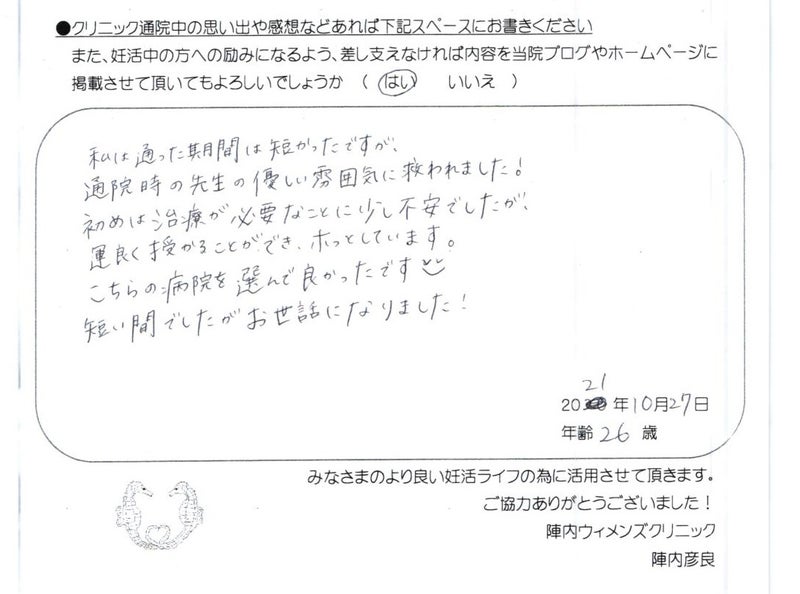 ●クリニック通院中の思い出や感想などあれば下記スペースにお書きください
また、妊活中の方への励みになるよう、差し支えなければ内容を当院ブログやホームページに
掲載させて頂いてもよろしいでしょうか ( はい いいえ )
私は通った期間は短かったですが、
通院時の先生の優しい雰囲気に救われました!
初めは治療が必要なことに少し不安でしたが、
運良く授かることができ、ホッとしています。
こちらの病院を選んで良かったです
短い間でしたがお世話になりました!
21
20 年10月27日
年齢 26 歳
みなさまのより良い妊活ライフの為に活用させて頂きます。
ご協力ありがとうございました!
陣内ウィメンズクリニック
陣内彦良